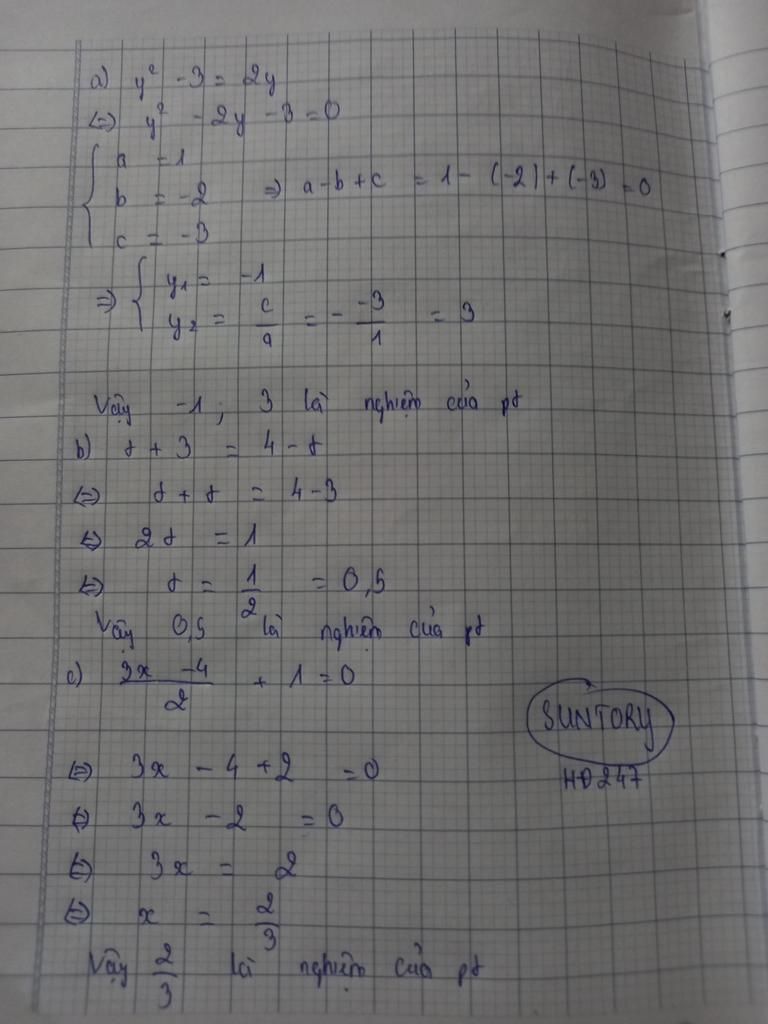 a) y² - 3 = 2y
⇔ y² - 2y - 3 = 0
{ a = 1
b = -2 ⇒ a - b + c = 1 - (-2) + (-3) = 0
c = -3
⇒ { y₁ = -1
y₂ = c/a = - -3/1 = 3
Vậy -1 ; 3 là nghiệm của pt
b) t + 3 = 4 - t
⇔ t + t = 4 - 3
⇔ 2t = 1
⇔ t = 1/2 = 0,5
Vậy 0,5 là nghiệm của pt
c) (3x - 4)/2 + 1 = 0
SUNTORY
⇔ 3x - 4 + 2 = 0
HD247
⇔ 3x - 2 = 0
⇔ 3x = 2
⇔ x = 2/3
Vậy 2/3 là nghiệm của pt